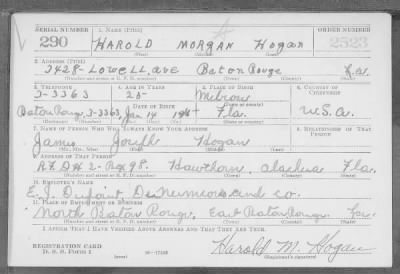 SERIAL NUMBER 1. NAME (Print) ORDER NUMBER
290 HAROLD MORGAN Hogan 2523
(First) (Middle) (Last)
2. ADDRESS (Print)
3428-LOWELL, ave Baton Rouge La.
(Number and street or R. F. D. number) (Town) (County) (State)
3. TELEPHONE 4. AGE IN YEARS 5. PLACE OF BIRTH 6. COUNTRY OF CITIZENSHIP
3-3363 20
DATE OF BIRTH (Town or county)
Baton Rouge, 3-3363 Jan 14 Fla. U.S.A.
(Exchange) (Number) (Mo.) (Day) (Yr.) (State or country)
7. NAME OF PERSON WHO WILL ALWAYS KNOW YOUR ADDRESS 8. RELATIONSHIP OF THAT PERSON
James Hogan
(Mr., Mrs., Miss) (First) (Middle) (Last)
9. ADDRESS OF THAT PERSON
Hawthorn, Alachua Fla.
(Number and street or R. F. D. number) (Town) (County) (State)
10. EMPLOYER'S NAME
E. I. Dupont, DeNemiors and co.
11. PLACE OF EMPLOYMENT OR BUSINESS
North Baton Rouge, East Baton Rouge La.
(Number and street or R. F. D. number) (Town) (County) (State)
I AFFIRM THAT I HAVE VERIFIED ABOVE ANSWERS AND THAT THEY ARE TRUE.
REGISTRATION CARD
D. S. S. Form 1 Harold M. Hogan
(Registrant's signature)